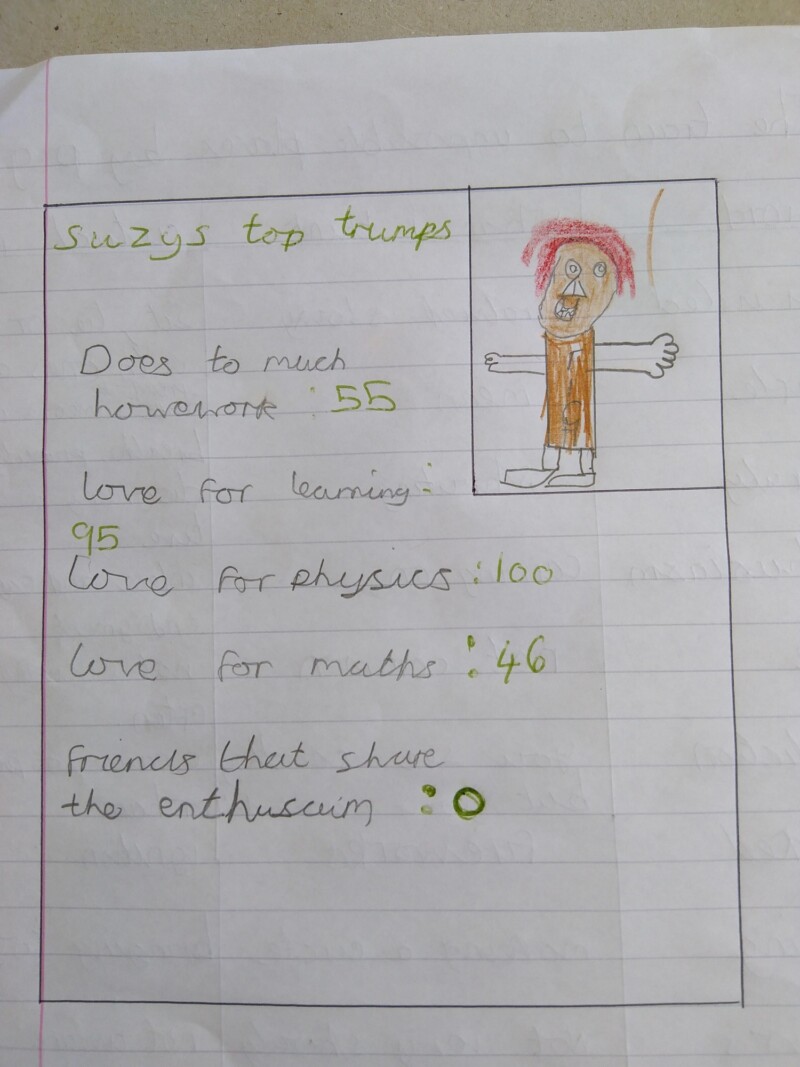 suzys top trumps
Does to much
howework : 55
love for learning:
95
love for physics : 100
love for maths : 46
friends that share
the enthusaim : 0